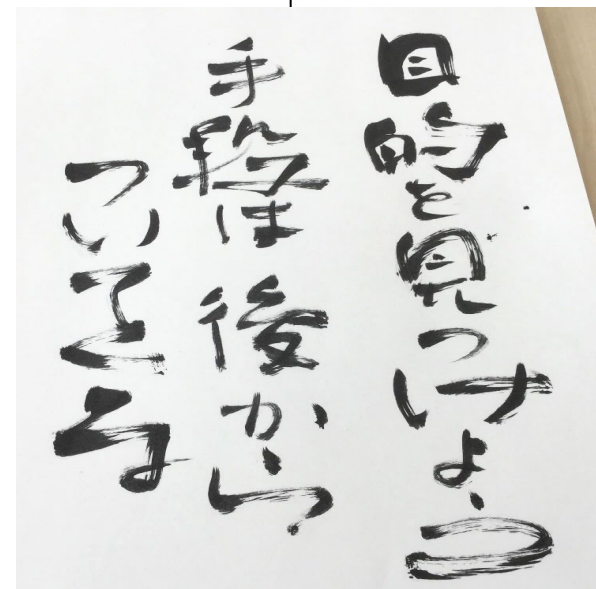 目的を見つけよう
手段は後から
ついてくる